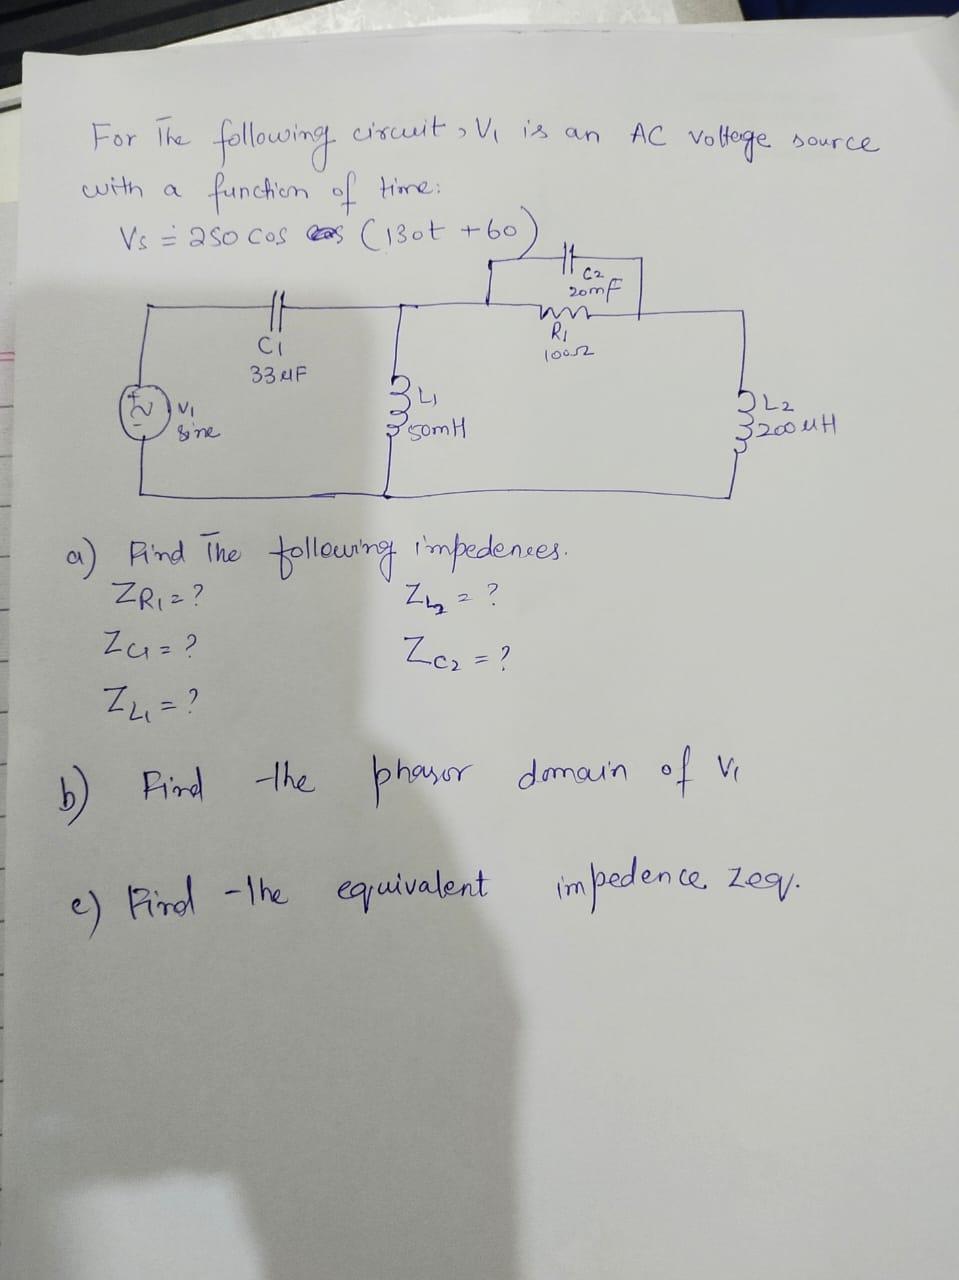 For The following circuit, V1 is an AC voltege source
with a function of time:
Vs = 250 cos (130t +60)
C2
20mF
R1
100Ω
C1
33µF
L1
50mH
L2
200µH
+
-
V1
sine
a) Find The following impedences.
ZR1 = ?
ZL2 = ?
ZC1 = ?
ZC2 = ?
ZL1 = ?
b) Find the phasor domain of V1
c) Find the equivalent impedence Zeq.